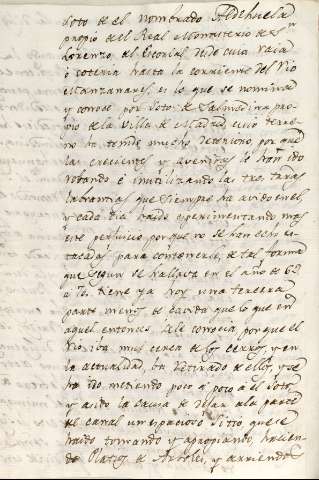 Soto de el nombrado Aldehuela
propio del Real Monasterio de Sn.
Lorenzo, el Escorial desde cuia raia
ó coteria hasta la corriente del Rio
Manzanares, es lo que se nomina
y conoce por Soto de Salmedina pro-
pio de la Villa de Madrid cuio terre-
no ha tenido mucho deterioro, por que
las crecientes y avenidas le han ido
robando é inutilizando las tres tierras
labrantias que siempre ha avido en el,
y cada dia se va esperimentando mas
este perjuicio porque no se han echo es-
tacadas para contenerle, de tal forma
que segun se hallava en el año de 69
a 70. tiene ya hoy una tercera
parte menos de cavida que lo que en
aquel entonces se le conocia, porque el
Rio iba mui cerca de los cerros, y en
la actualidad ha retirado de ellos, y se
ha ido metiendo poco á poco á el Soto,
y asido la causa de dejar a la parte
del canal un espacioso sitio que se
haido tomando y apropiando, hacien-
do Plantio de Arboles, y arriendo